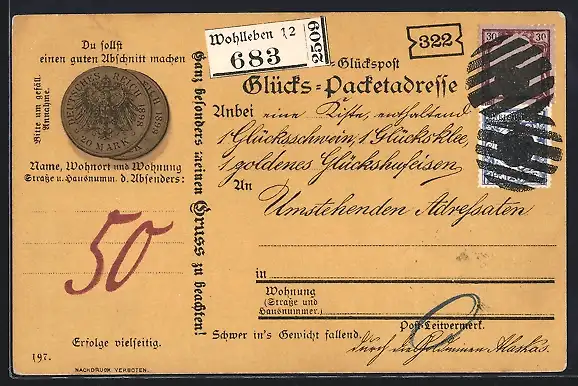 Du sollst
einen guten Abschnitt machen
Bitte um gefäll.
Annahme.
DEUTSCHES REICH
1898
20 MARK
Name, Wohnort und Wohnung
Straße u. Hausnumm. d. Absenders:
50
Erfolge vielseitig.
197.
NACHDRUCK VERBOTEN.
Ganz besonders meinen Gruss zu beachten!
Wohlleben 12
683
2509
322
30 30
-Glückspost
Glücks=Packetadresse
Anbei eine Kiste, enthaltend
1 Glücksschwein, 1 Glücksklee,
1 goldenes Glückshufeisen.
An
Umstehenden Adressaten
in
Wohnung
(Straße und
Hausnummer.)
Post-Leitvermerk.
Schwer in's Gewicht fallend.
durch die Goldminen Alaskas.